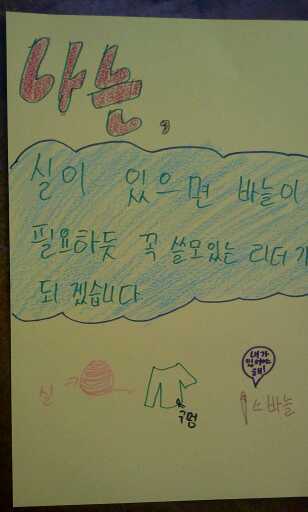 나는,
실이 있으면 바늘이
필요하듯 꼭 쓸모있는 리더가
되겠습니다
실
구멍
내가
있어야
해!
바늘